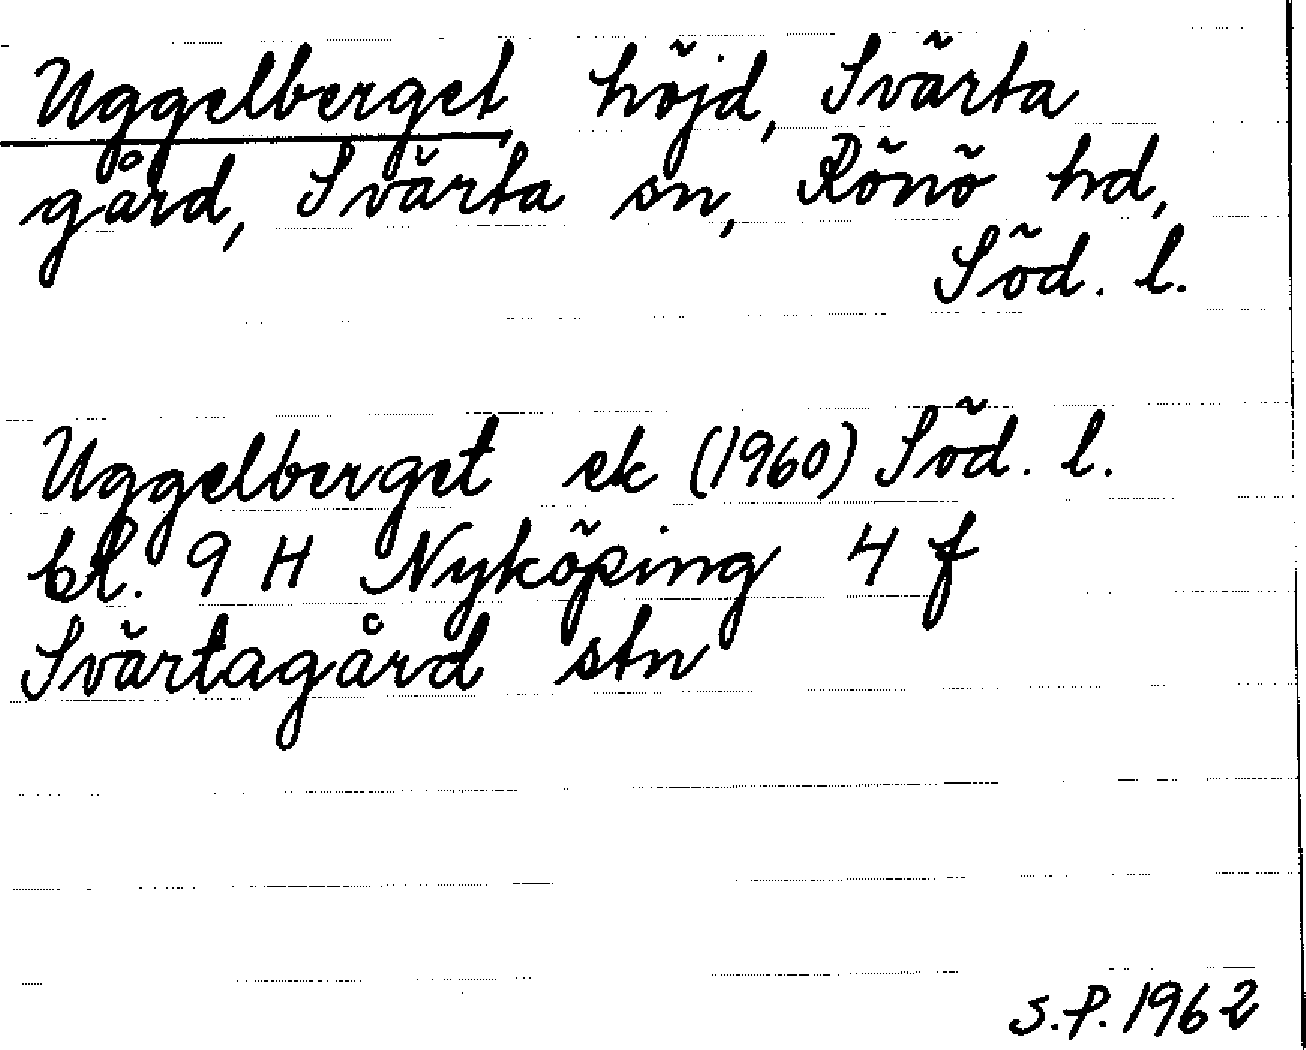 Uggelberget höjd, Svärta
gård, Svärta sn, Rönö hd,
Söd. l.
Uggelberget ek (1960) Söd. l.
bl. 9 H Nyköping 4 f
Svärtagård stn
S.P. 1962